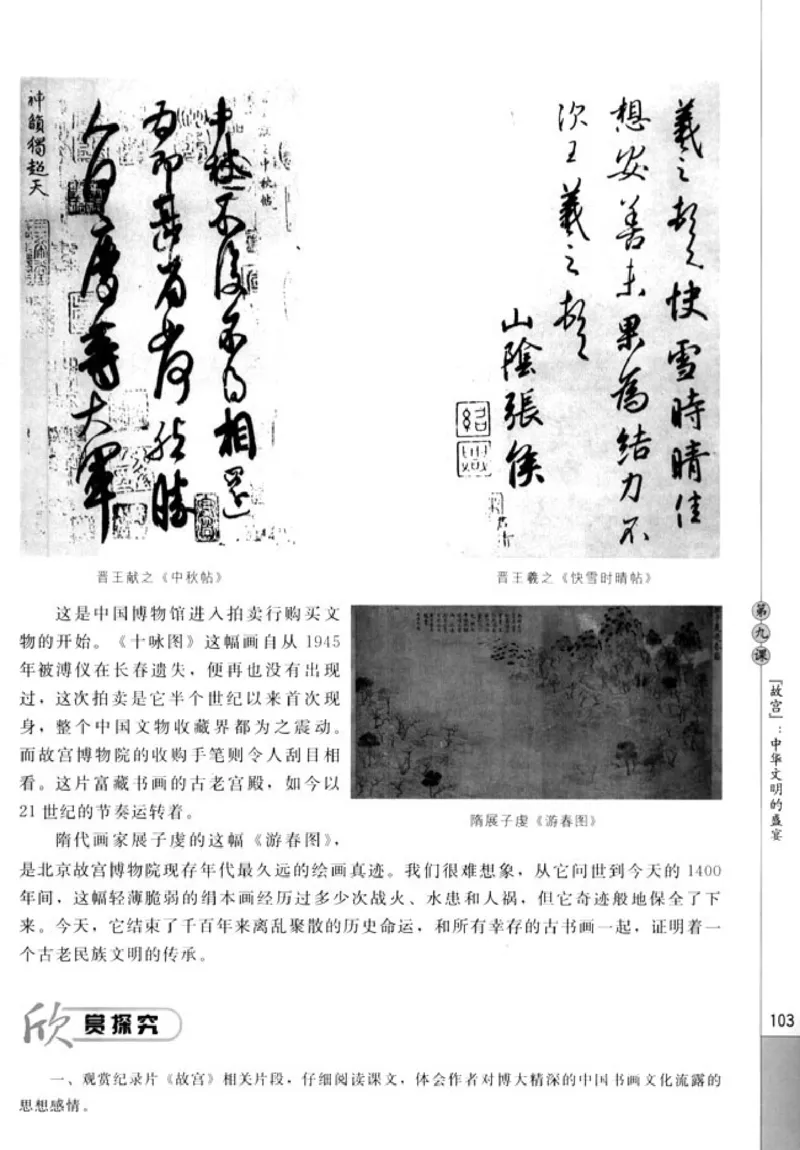 神韻獨超天
中秋不復不得相還
為即甚省如何然勝
人何慶等大軍
羲之頓首快雪時晴佳
想安善未果為結力不
次王羲之頓首
山陰張侯
晋王献之《中秋帖》
晋王羲之《快雪时晴帖》
这是中国博物馆进入拍卖行购买文
物的开始。《十咏图》这幅画自从 1945
年被溥仪在长春遗失，便再也没有出现
过，这次拍卖是它半个世纪以来首次现
身，整个中国文物收藏界都为之震动。
而故宫博物院的收购手笔则令人刮目相
看。这片富藏书画的古老宫殿，如今以
21 世纪的节奏运转着。
隋展子虔《游春图》
隋代画家展子虔的这幅《游春图》，
是北京故宫博物院现存年代最久远的绘画真迹。我们很难想象，从它问世到今天的 1400
年间，这幅轻薄脆弱的绢本画经历过多少次战火、水患和人祸，但它奇迹般地保全了下
来。今天，它结束了千百年来离乱聚散的历史命运，和所有幸存的古书画一起，证明着一
个古老民族文明的传承。
欣赏探究
一、观赏纪录片《故宫》相关片段，仔细阅读课文，体会作者对博大精深的中国书画文化流露的
思想感情。
第九课
『故宫』：中华文明的盛宴
103